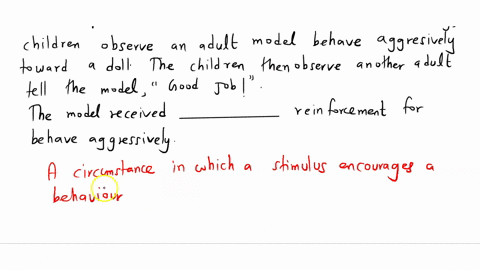 children observe an adult model behave aggresively
toward a doll. The children then observe another adult
tell the model, "Good job!".
The model received __________ reinforcement for
behave aggressively.
A circumstance in which a stimulus encourages a
behaviour